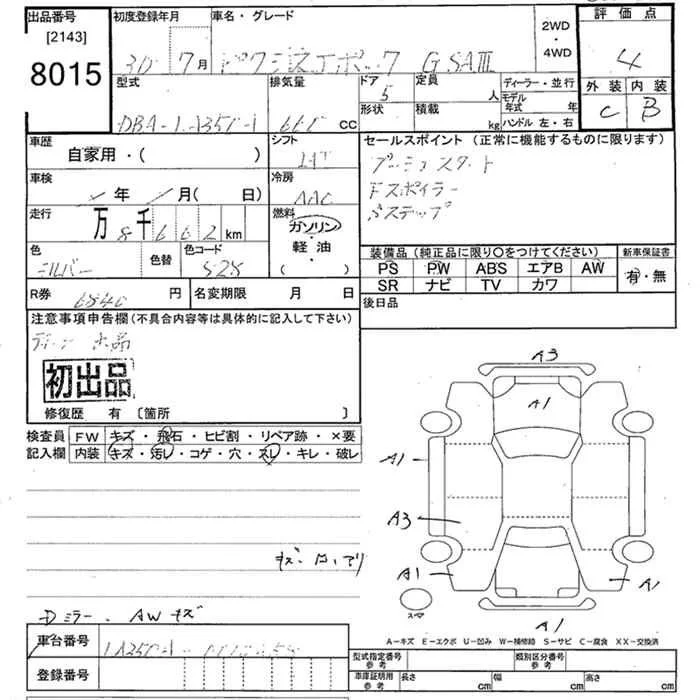 出品番号 初度登録年月 車名・グレード 2WD・4WD 評価点
[2143]
8015
30年 7月
4
型式 排気量 ドア 定員 ディーラー・並行 外装 内装
5 人 モデル年式 年 C B
形状 積載 kg ハンドル 左・右
cc
車歴 シフト セールスポイント (正常に機能するものに限ります)
自家用・( )
車検 冷房
年 月( 日) AAC
Fスポイラー
走行 燃料
万 8千 6 6 2 km ガソリン・軽・油 ( )
Sステップ
色 色替 色コード
シルバー S28
装備品 (純正品に限り○をつけてください) 新車保証書
PS PW ABS エアB AW 有・無
SR ナビ TV カワ
R券 円 名変期限 月 日 後日品
6840
注意事項申告欄(不具合内容等は具体的に記入して下さい)
初出品
修復歴 有 〔箇所 〕
検査員 FW キズ・飛石・ヒビ割・リペア跡・×要
記入欄 内装 キズ・汚レ・コゲ・穴・スレ・キレ・破レ
A3
A1
A1
A3
A1
A1
スペア
A1
Dミラー・AWキズ
A-キズ E-エクボ U-凹み W-補修跡 S-サビ C-腐食 XX-交換済
車台番号
型式指定番号 参考 類別区分番号 参考
登録番号
車庫証明用 参考 長さ cm 幅 cm 高さ cm